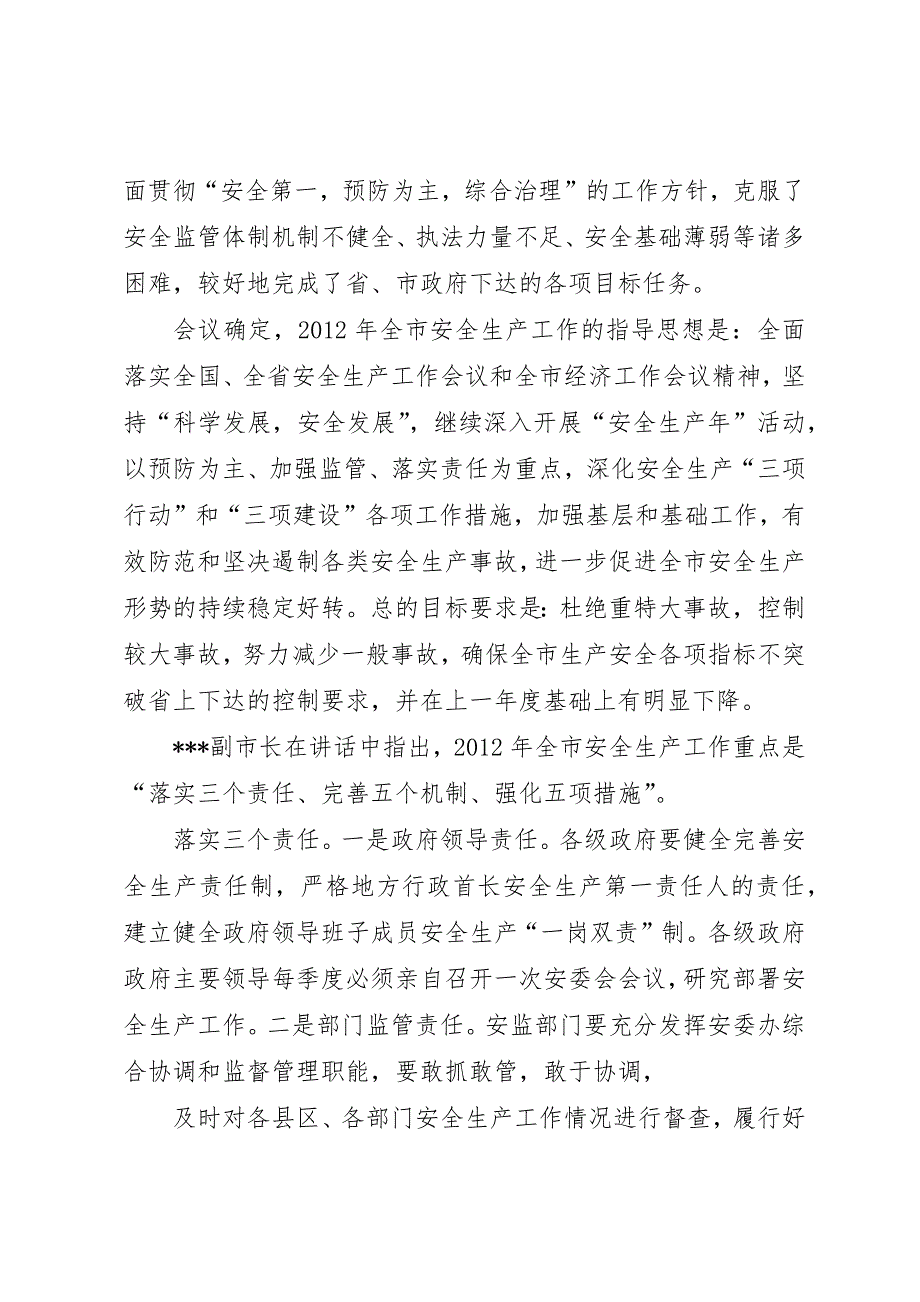 面贯彻“安全第一，预防为主，综合治理”的工作方针，克服了
安全监管体制机制不健全、执法力量不足、安全基础薄弱等诸多
困难，较好地完成了省、市政府下达的各项目标任务。
会议确定，2012 年全市安全生产工作的指导思想是：全面
落实全国、全省安全生产工作会议和全市经济工作会议精神，坚
持“科学发展，安全发展”，继续深入开展“安全生产年”活动，
以预防为主、加强监管、落实责任为重点，深化安全生产“三项
行动”和“三项建设”各项工作措施，加强基层和基础工作，有
效防范和坚决遏制各类安全生产事故，进一步促进全市安全生产
形势的持续稳定好转。总的目标要求是：杜绝重特大事故，控制
较大事故，努力减少一般事故，确保全市生产安全各项指标不突
破省上下达的控制要求，并在上一年度基础上有明显下降。
***副市长在讲话中指出，2012 年全市安全生产工作重点是
“落实三个责任、完善五个机制、强化五项措施”。
落实三个责任。一是政府领导责任。各级政府要健全完善安
全生产责任制，严格地方行政首长安全生产第一责任人的责任，
建立健全政府领导班子成员安全生产“一岗双责”制。各级政府
政府主要领导每季度必须亲自召开一次安委会会议，研究部署安
全生产工作。二是部门监管责任。安监部门要充分发挥安委办综
合协调和监督管理职能，要敢抓敢管，敢于协调，
及时对各县区、各部门安全生产工作情况进行督查，履行好